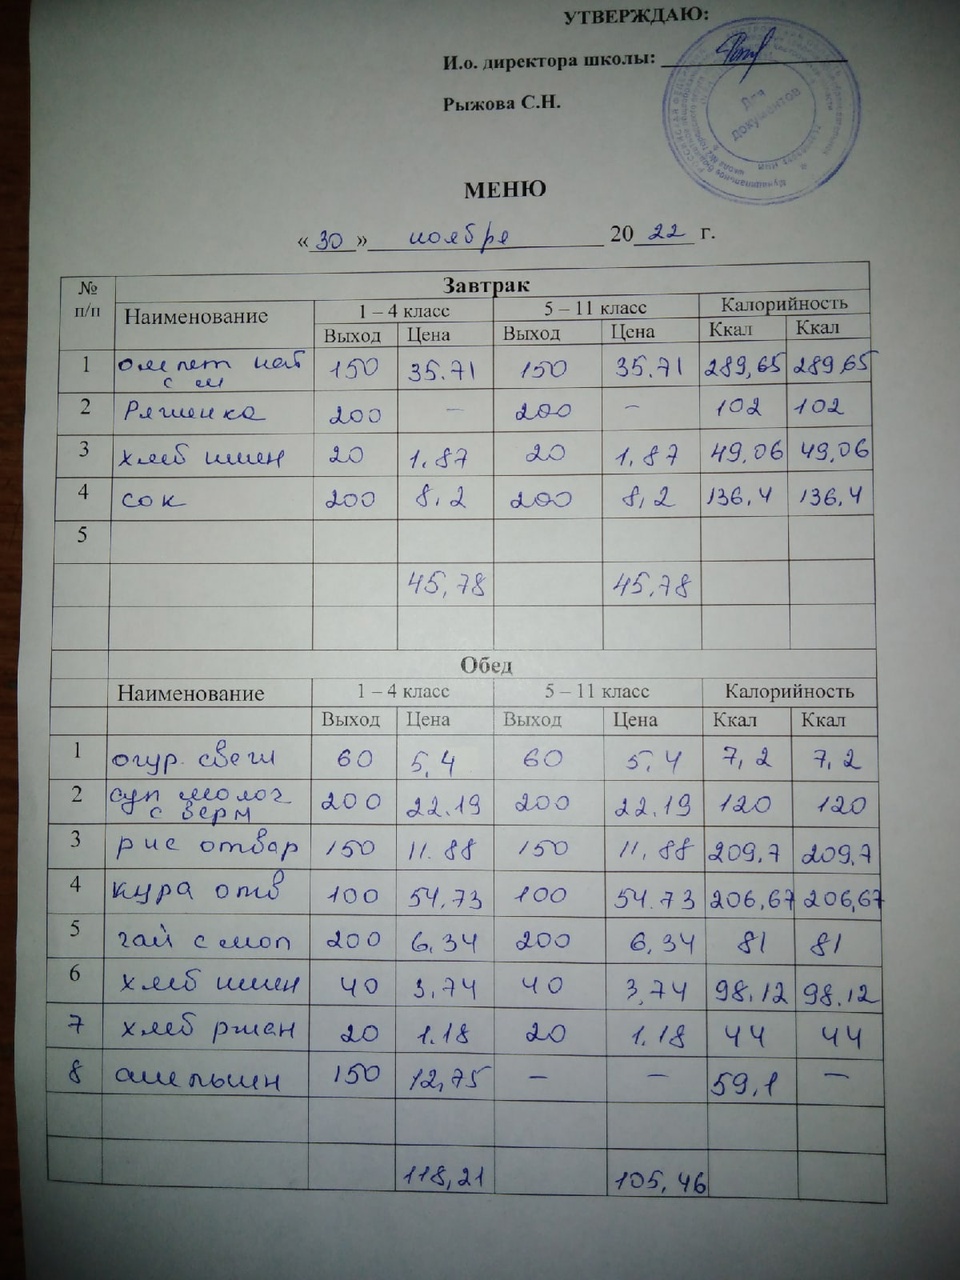 УТВЕРЖДАЮ:
И.о. директора школы:
Рыжова С.Н.
Для документов
МЕНЮ
«30» ноября 2022 г.
№ п/п Завтрак
Наименование 1 – 4 класс 5 – 11 класс Калорийность
Выход Цена Выход Цена Ккал Ккал
1 омлет нат 150 35.71 150 35.71 289,65 289,65
с м
2 Ряженка 200 – 200 – 102 102
3 хлеб пшен 20 1.87 20 1,87 49,06 49,06
4 сок 200 8,2 200 8,2 136,4 136,4
5
45,78 45,78
Обед
Наименование 1 – 4 класс 5 – 11 класс Калорийность
Выход Цена Выход Цена Ккал Ккал
1 огур. свеж 60 5,4 60 5,4 7,2 7,2
2 суп молоч 200 22.19 200 22.19 120 120
с верм
3 рис отвар 150 11.88 150 11,88 209,7 209,7
4 кура отв 100 54,73 100 54.73 206,67 206,67
5 чай с мол 200 6,34 200 6,34 81 81
6 хлеб пшен 40 3,74 40 3,74 98,12 98,12
7 хлеб ржан 20 1.18 20 1.18 44 44
8 апельсин 150 12,75 – – 59,1 –
118,21 105,46